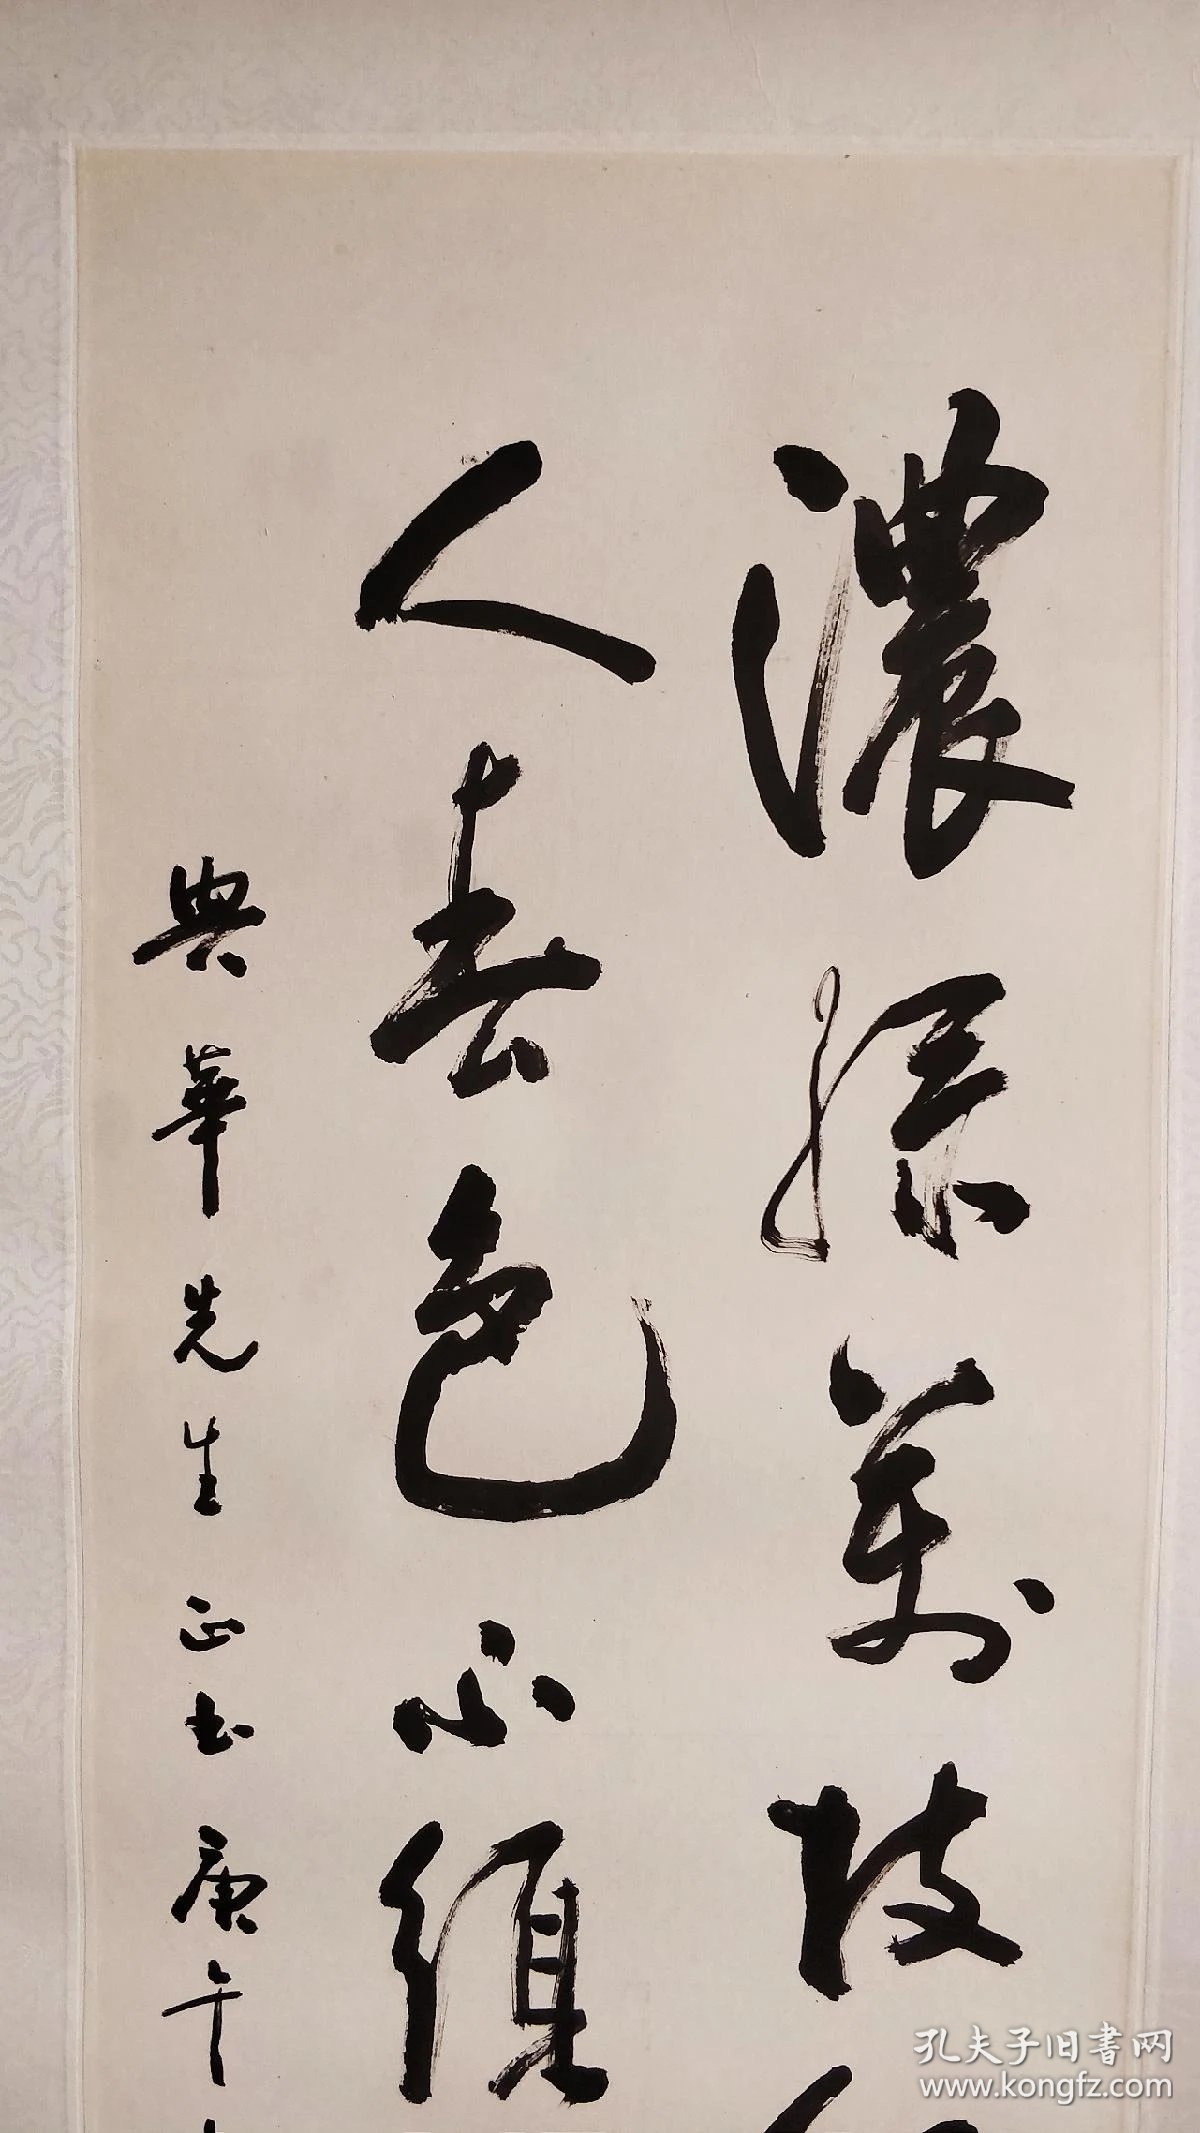 濃綠萬枝紅
人春色不須
典華先生正书庚午
孔夫子旧書网
www.kongfz.com